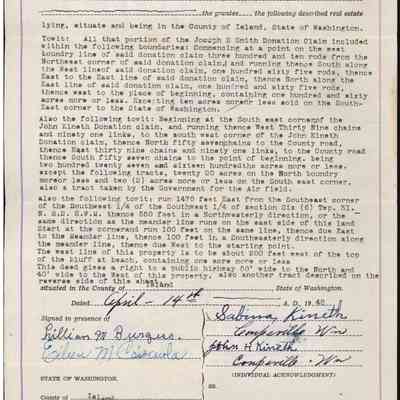 the grantee, the following described real estate
lying, situate and being in the County of Island, State of Washington.
Towit: All that portion of the Joseph S Smith Donation Claim included
within the following boundaries: Commencing at a point on the west
boundary line of said donation claim three hundred and ten rods from the
Northwest corner of said donation claim; and running thence South along
the West line of said donation claim, one hundred sixty five rods, thence
East to the East line of said donation claim, thence North along the
East line of said donation claim, one hundred and sixty five rods,
thence west to the place of beginning, containing one hundred and sixty
acres more or less. Excepting ten acres more or less sold on the South-
East corner to the State of Washington.
Also the following towit: Beginning at the South east corner of the
John Kineth Donation claim, and running thence West Thirty Nine chains
and ninety one links, to the south west corner of the John Kineth
Donation claim, thence North fifty seven chains to the County road,
thence East thirty nine chains and ninety one links, to the County road
thence South fifty seven chains to the point of beginning, being
two hundred twenty seven and sixteen hundredths acres more or less.
except the following tracts, twenty 20 acres on the North boundry
more or less and two (2) acres more or less on the South east corner,
also a tract taken by the Government for the Air field.
also the following towit: run 1470 feet East from the Southeast corner
of the Southwest 1/4 of the Southeast 1/4 of section Six (6) Twp. 31.
thence 500 feet in a Northwesterly direction, or the
same direction as the meander line runs on the east side of this land
Start at the corner and run 100 feet on the same line, thence due East
to the Meander line, thence 100 feet in a Southeasterly direction along
the meander line, thence due West to the starting point.
The west line of this property is to be about 200 feet west of the top
of the bluff at beach, containing one acre more or less
This deed gives a right to a public highway 60' wide to the North and
40' wide to the West of this property. also another tract described on the
reverse side of this
situated in the County of Island State of Washington.
Dated April - 14th A. D. 19
Signed in presence of Sabina Kineth
Lillian M Burgess Coupeville Wn
Eileen M John H Kineth
Coupeville - Wn
(INDIVIDUAL ACKNOWLEDGMENT)
STATE OF WASHINGTON, ss.
County of Island